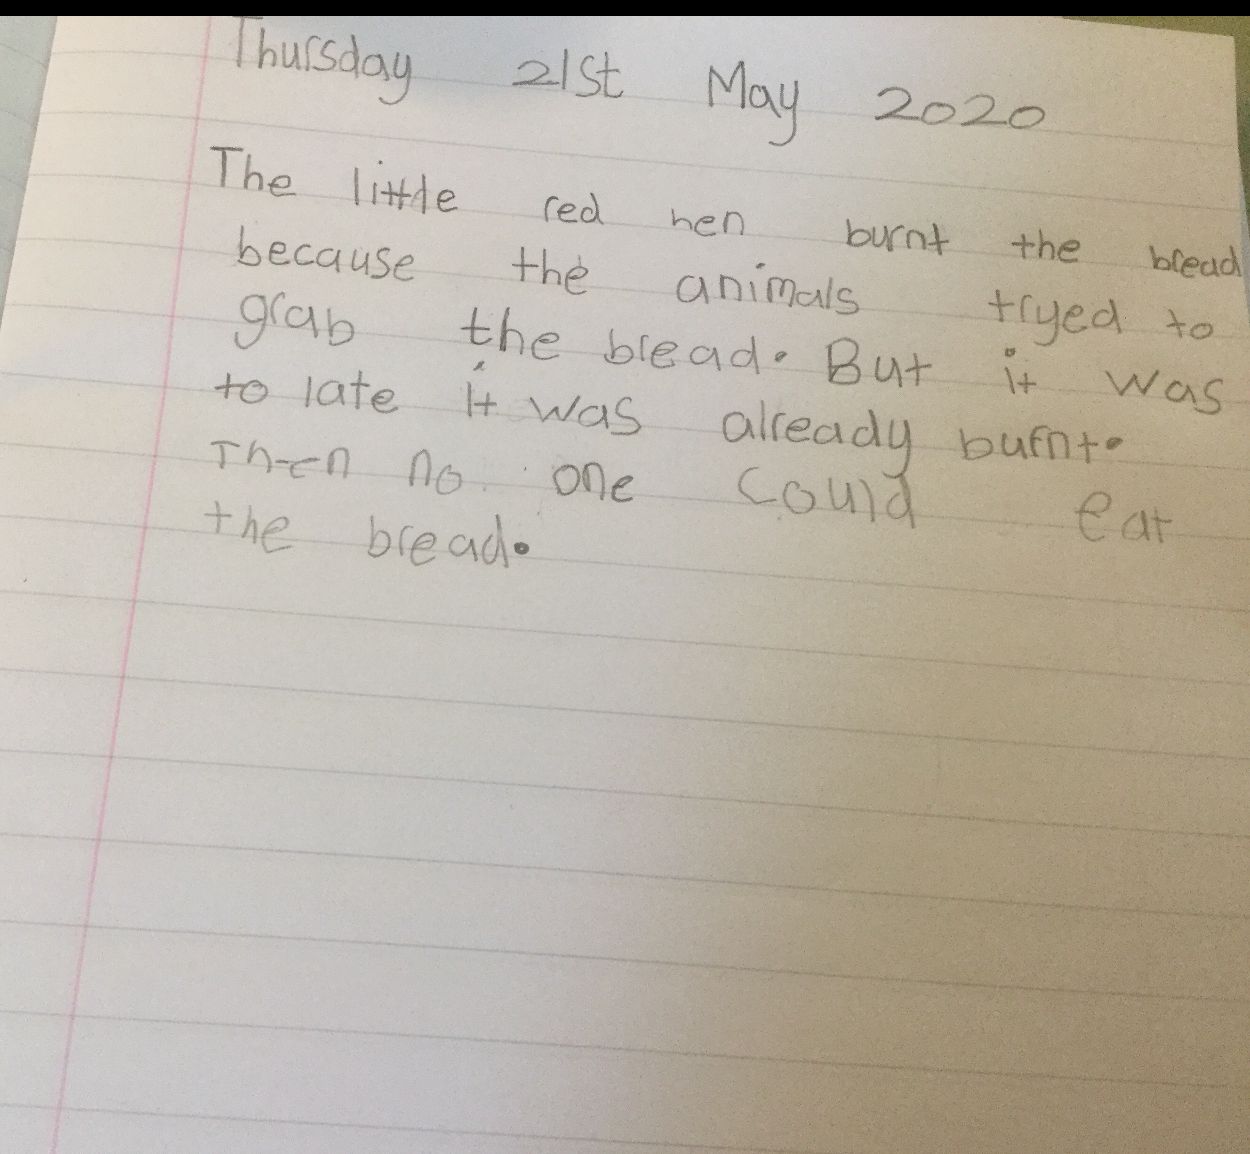 Thursday 21St May 2020
The little red hen burnt the bread
because the animals tryed to
grab the bread. But it was
to late it was already burnt.
Then no one could eat
the bread.